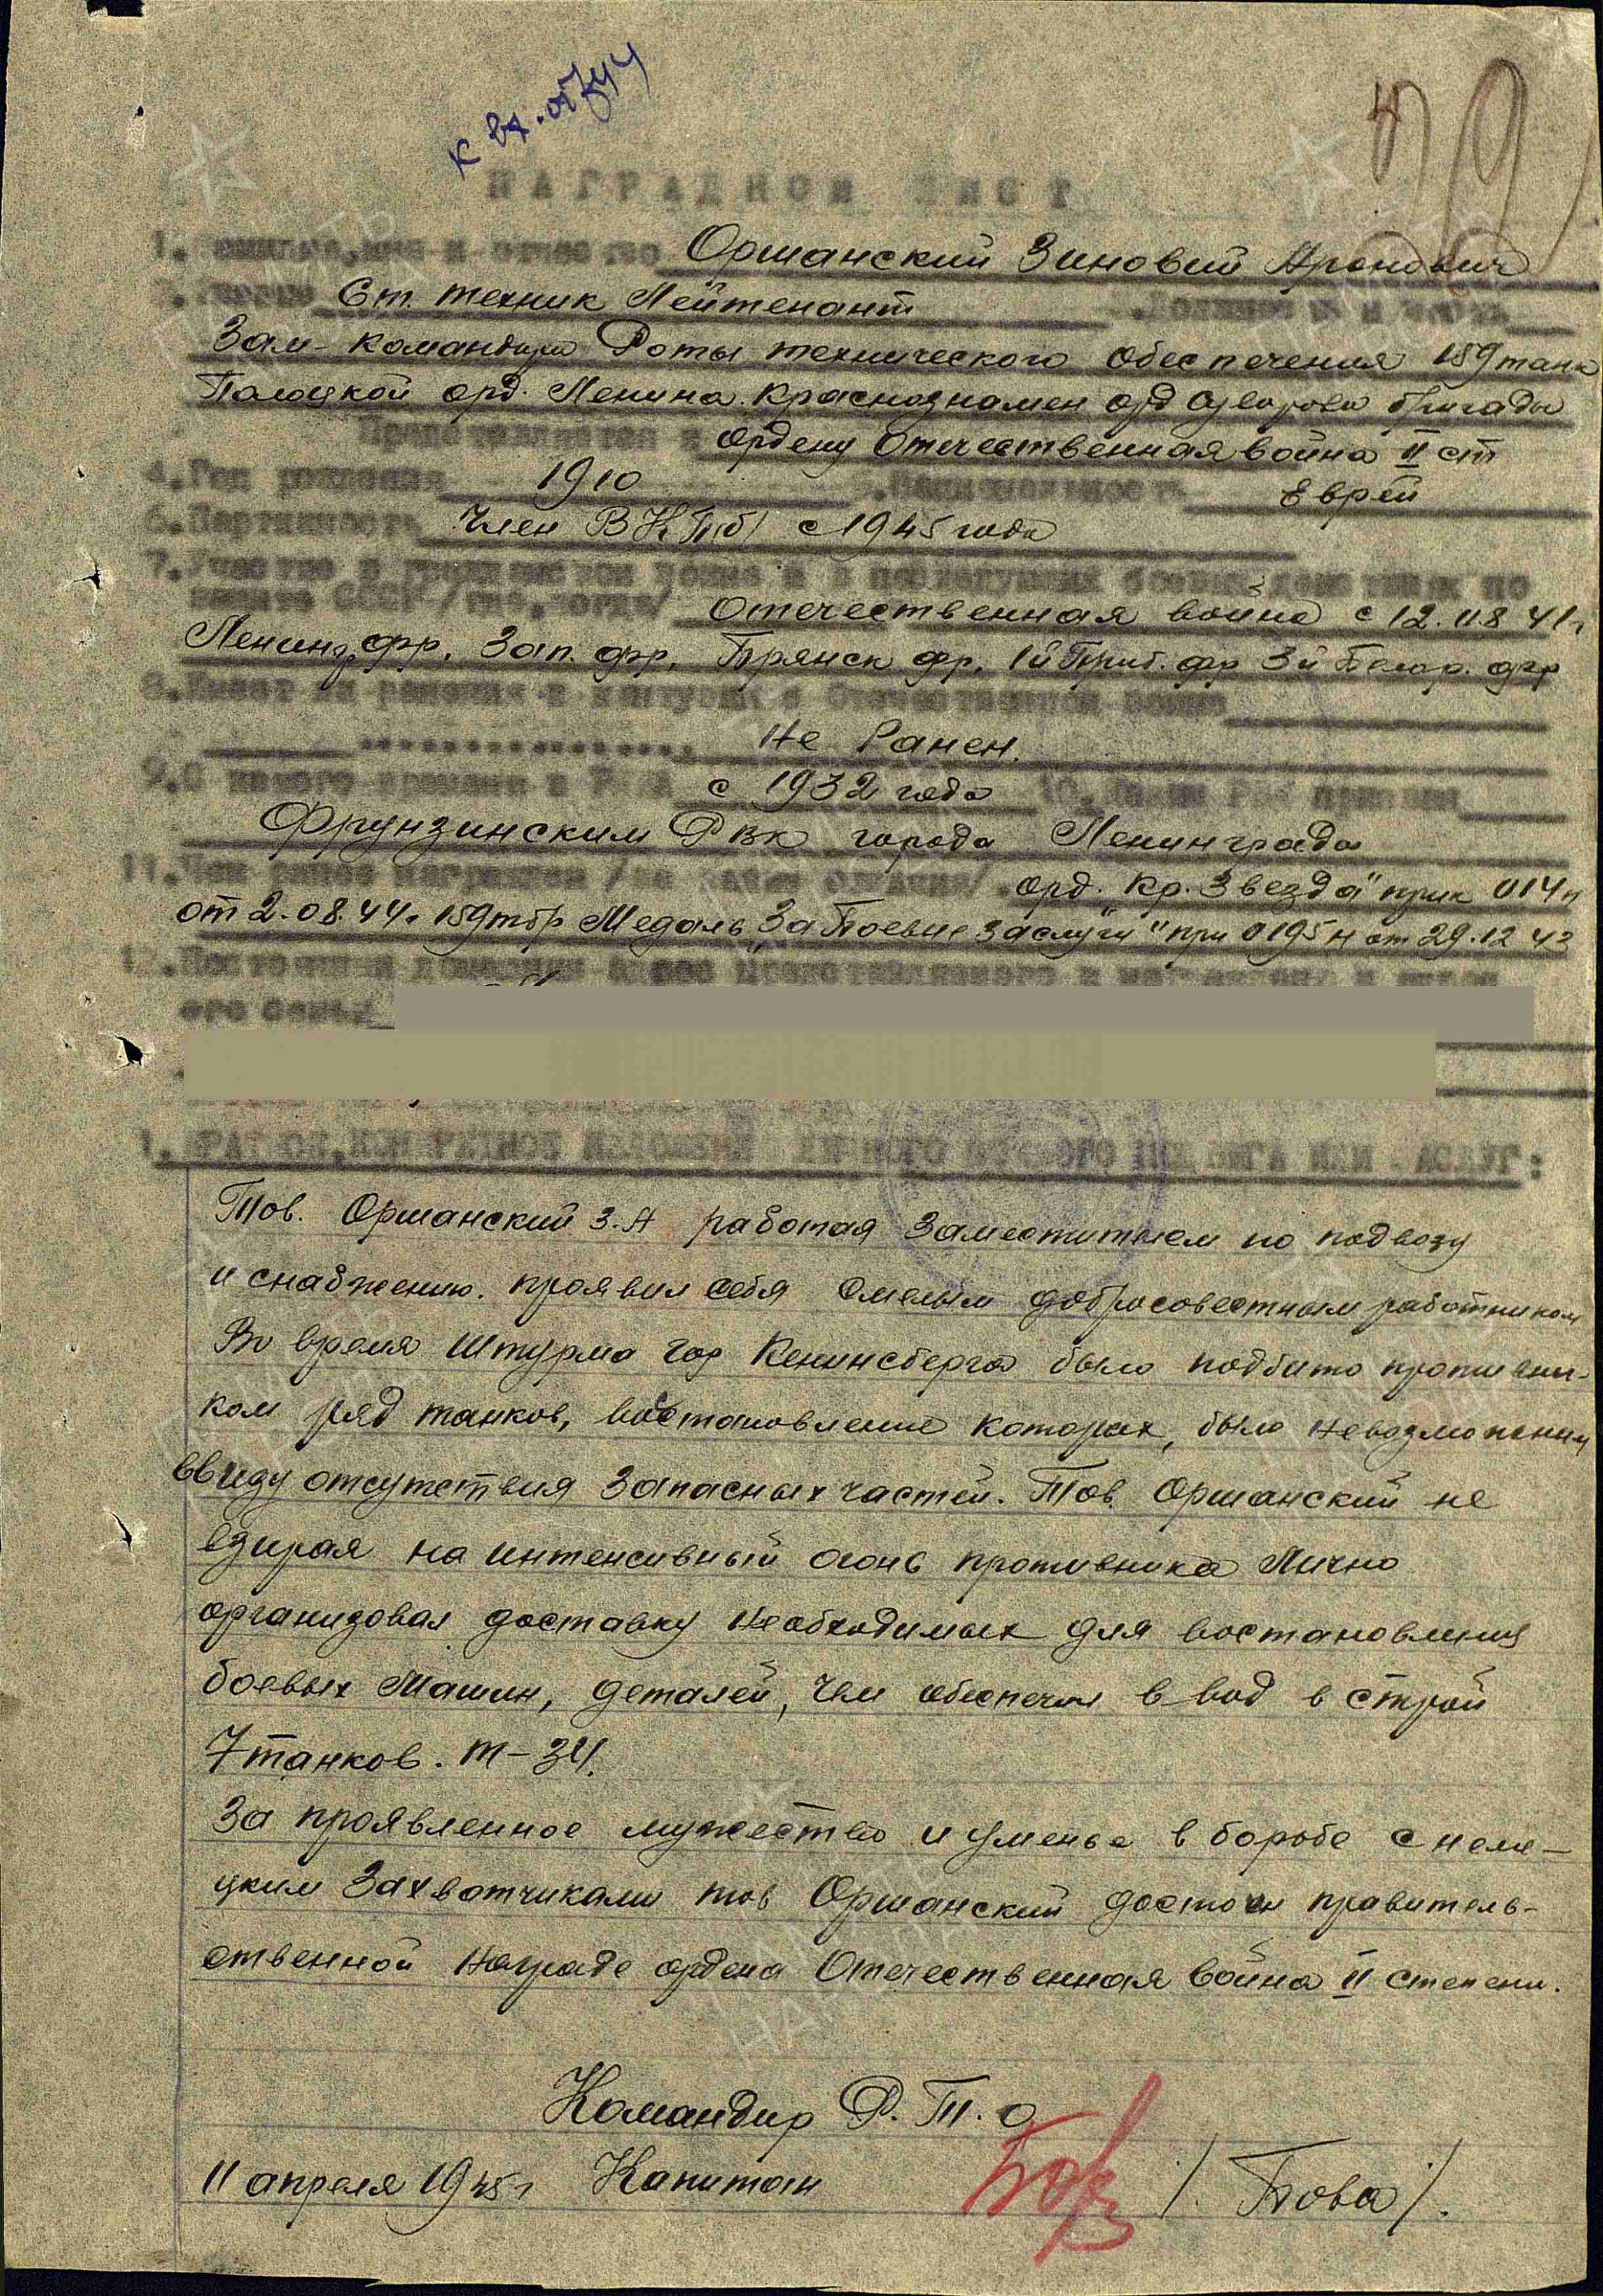 к вх. 01744
НАГРАДНОЙ ЛИСТ
1. Фамилия, имя и отчество Оршанский Зиновий Аронович
2. Звание Ст. техник Лейтенант 3. Должность и часть
Зам-командира Роты технического обеспечения 159 танк
Полоцкой орд. Ленина. Краснознамен орд Суворова бригады
Представляется к Ордену Отечественная война II ст
4. Год рождения 1910 5. Национальность Еврей
6. Партийность Член ВКП(б) с 1945 года
7. Участие в гражданской войне и в последующих боевых действиях по
защите СССР /где, когда/ Отечественная война с 12.08 41г
Ленингр фр, Зап. фр, Брянск фр, 1й Приб. фр 3й Белор. фр
8. Имеет ли ранения и контузии в Отечественной войне
Не Ранен.
9. С какого времени в РККА с 1932 года 10. Каким РВК призван
Фрунзинским РВК города Ленинграда
11. Чем ранее награжден /за какие отличия/ орд. "Кр. Звезда" прик 014н
от 2.08.44г 159 тбр Медаль "За Боевые заслуги" при 0195н от 29.12 43
12. Постоянный домашний адрес представляемого к награждению и адрес
его семьи
1. КРАТКОЕ, КОНКРЕТНОЕ ИЗЛОЖЕНИЕ ЛИЧНОГО БОЕВОГО ПОДВИГА ИЛИ ЗАСЛУГ:
Тов. Оршанский З.А работая Заместителем по подвозу
и снабжению. проявил себя смелым добросовестным работником
Во время Штурма гор Кенинсберга было подбито противни-
ком ряд танков, востановление которых, было невозможным
ввиду отсутствия Запасных частей. Тов. Оршанский не
взирая на интенсивный огонь противника Лично
организовал доставку необходимых для востановления
боевых Машин, деталей, Чем обеспечил в вод в строй
7 танков. Т-34.
За проявленное мужество и уменье в борьбе с неме-
цкими Захватчиками тов Оршанский достоен правитель-
ственной Награде ордена Отечественная война II степени.
Командир Р.Т.О
11 апреля 1945г Капитан /Бова/.